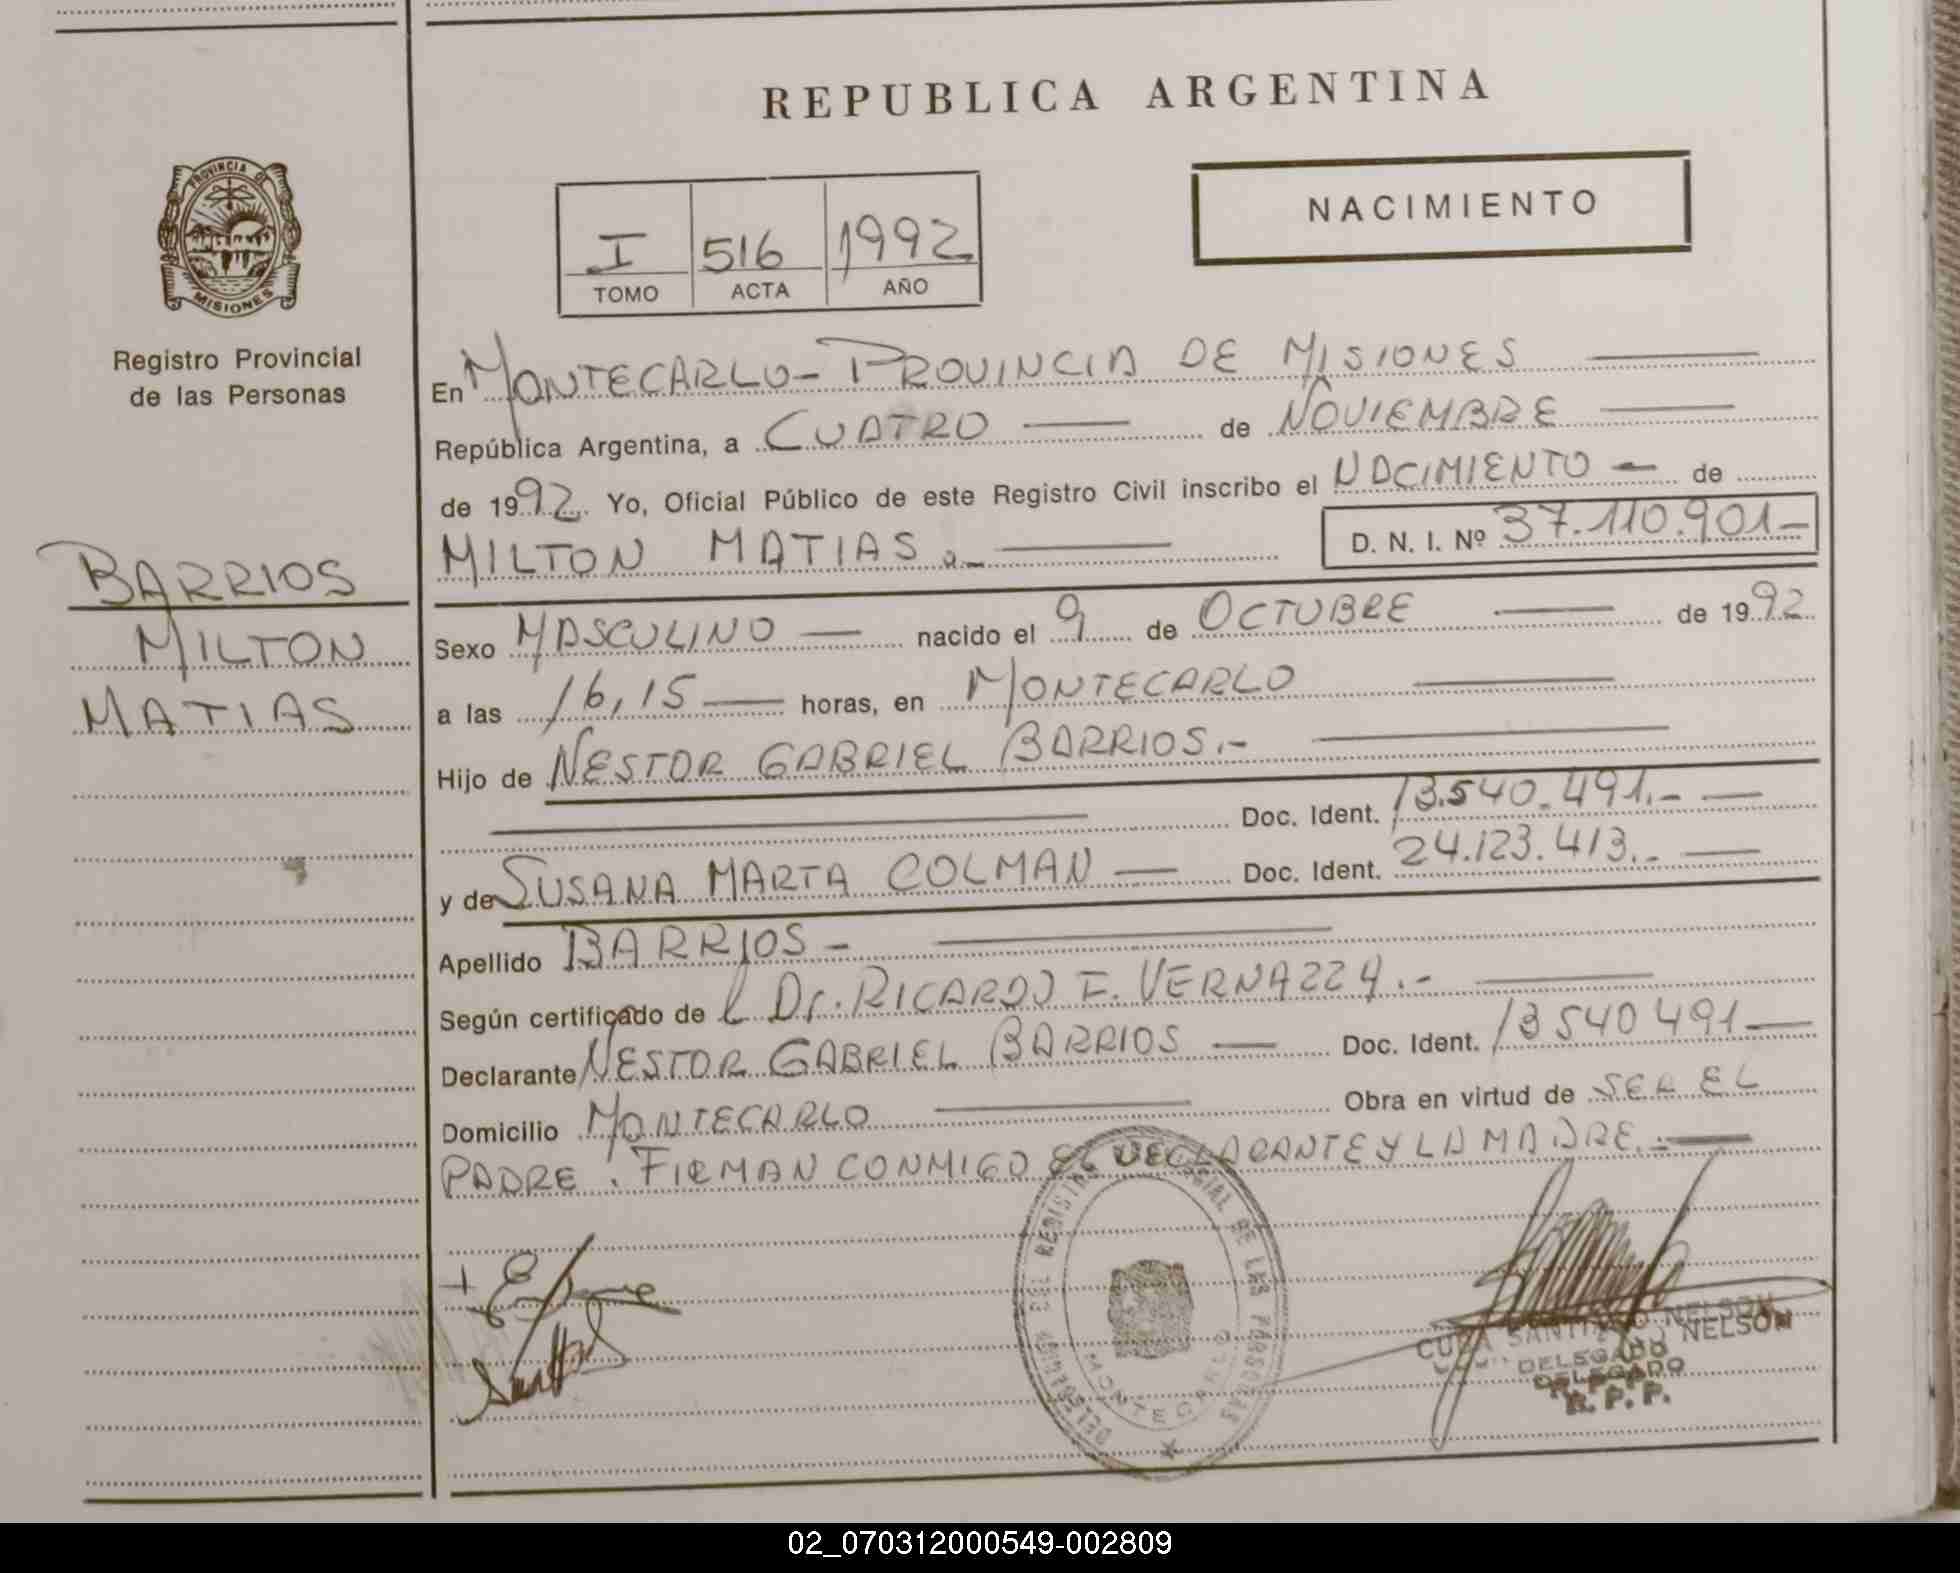 REPUBLICA ARGENTINA
PROVINCIA DE
MISIONES
Registro Provincial
de las Personas
I 516 1992
TOMO ACTA AÑO
NACIMIENTO
En MONTECARLO - PROVINCIA DE MISIONES
República Argentina, a CUATRO de NOVIEMBRE
de 1992. Yo, Oficial Público de este Registro Civil inscribo el NACIMIENTO - de
MILTON MATIAS.-
D. N. I. Nº 37.110.901-
BARRIOS
MILTON
MATIAS
Sexo MASCULINO nacido el 9 de OCTUBRE de 1992
a las 16,15 horas, en MONTECARLO
Hijo de NESTOR GABRIEL BARRIOS.-
Doc. Ident. 13.540.491.-
y de SUSANA MARTA COLMAN Doc. Ident. 24.123.413.-
Apellido BARRIOS -
Según certificado de Dr. RICARDO F. VERNAZZA.-
Declarante NESTOR GABRIEL BARRIOS Doc. Ident. 13540491
Domicilio MONTECARLO Obra en virtud de SER EL
PADRE. FIRMAN CONMIGO EL DECLARANTE Y LA MADRE.-
DEL REGISTRO DE LAS PERSONAS
MONTECARLO
SANTIAGO NELSON
NELSON
DELEGADO
DELEGADO
R. P. P.
02_070312000549-002809